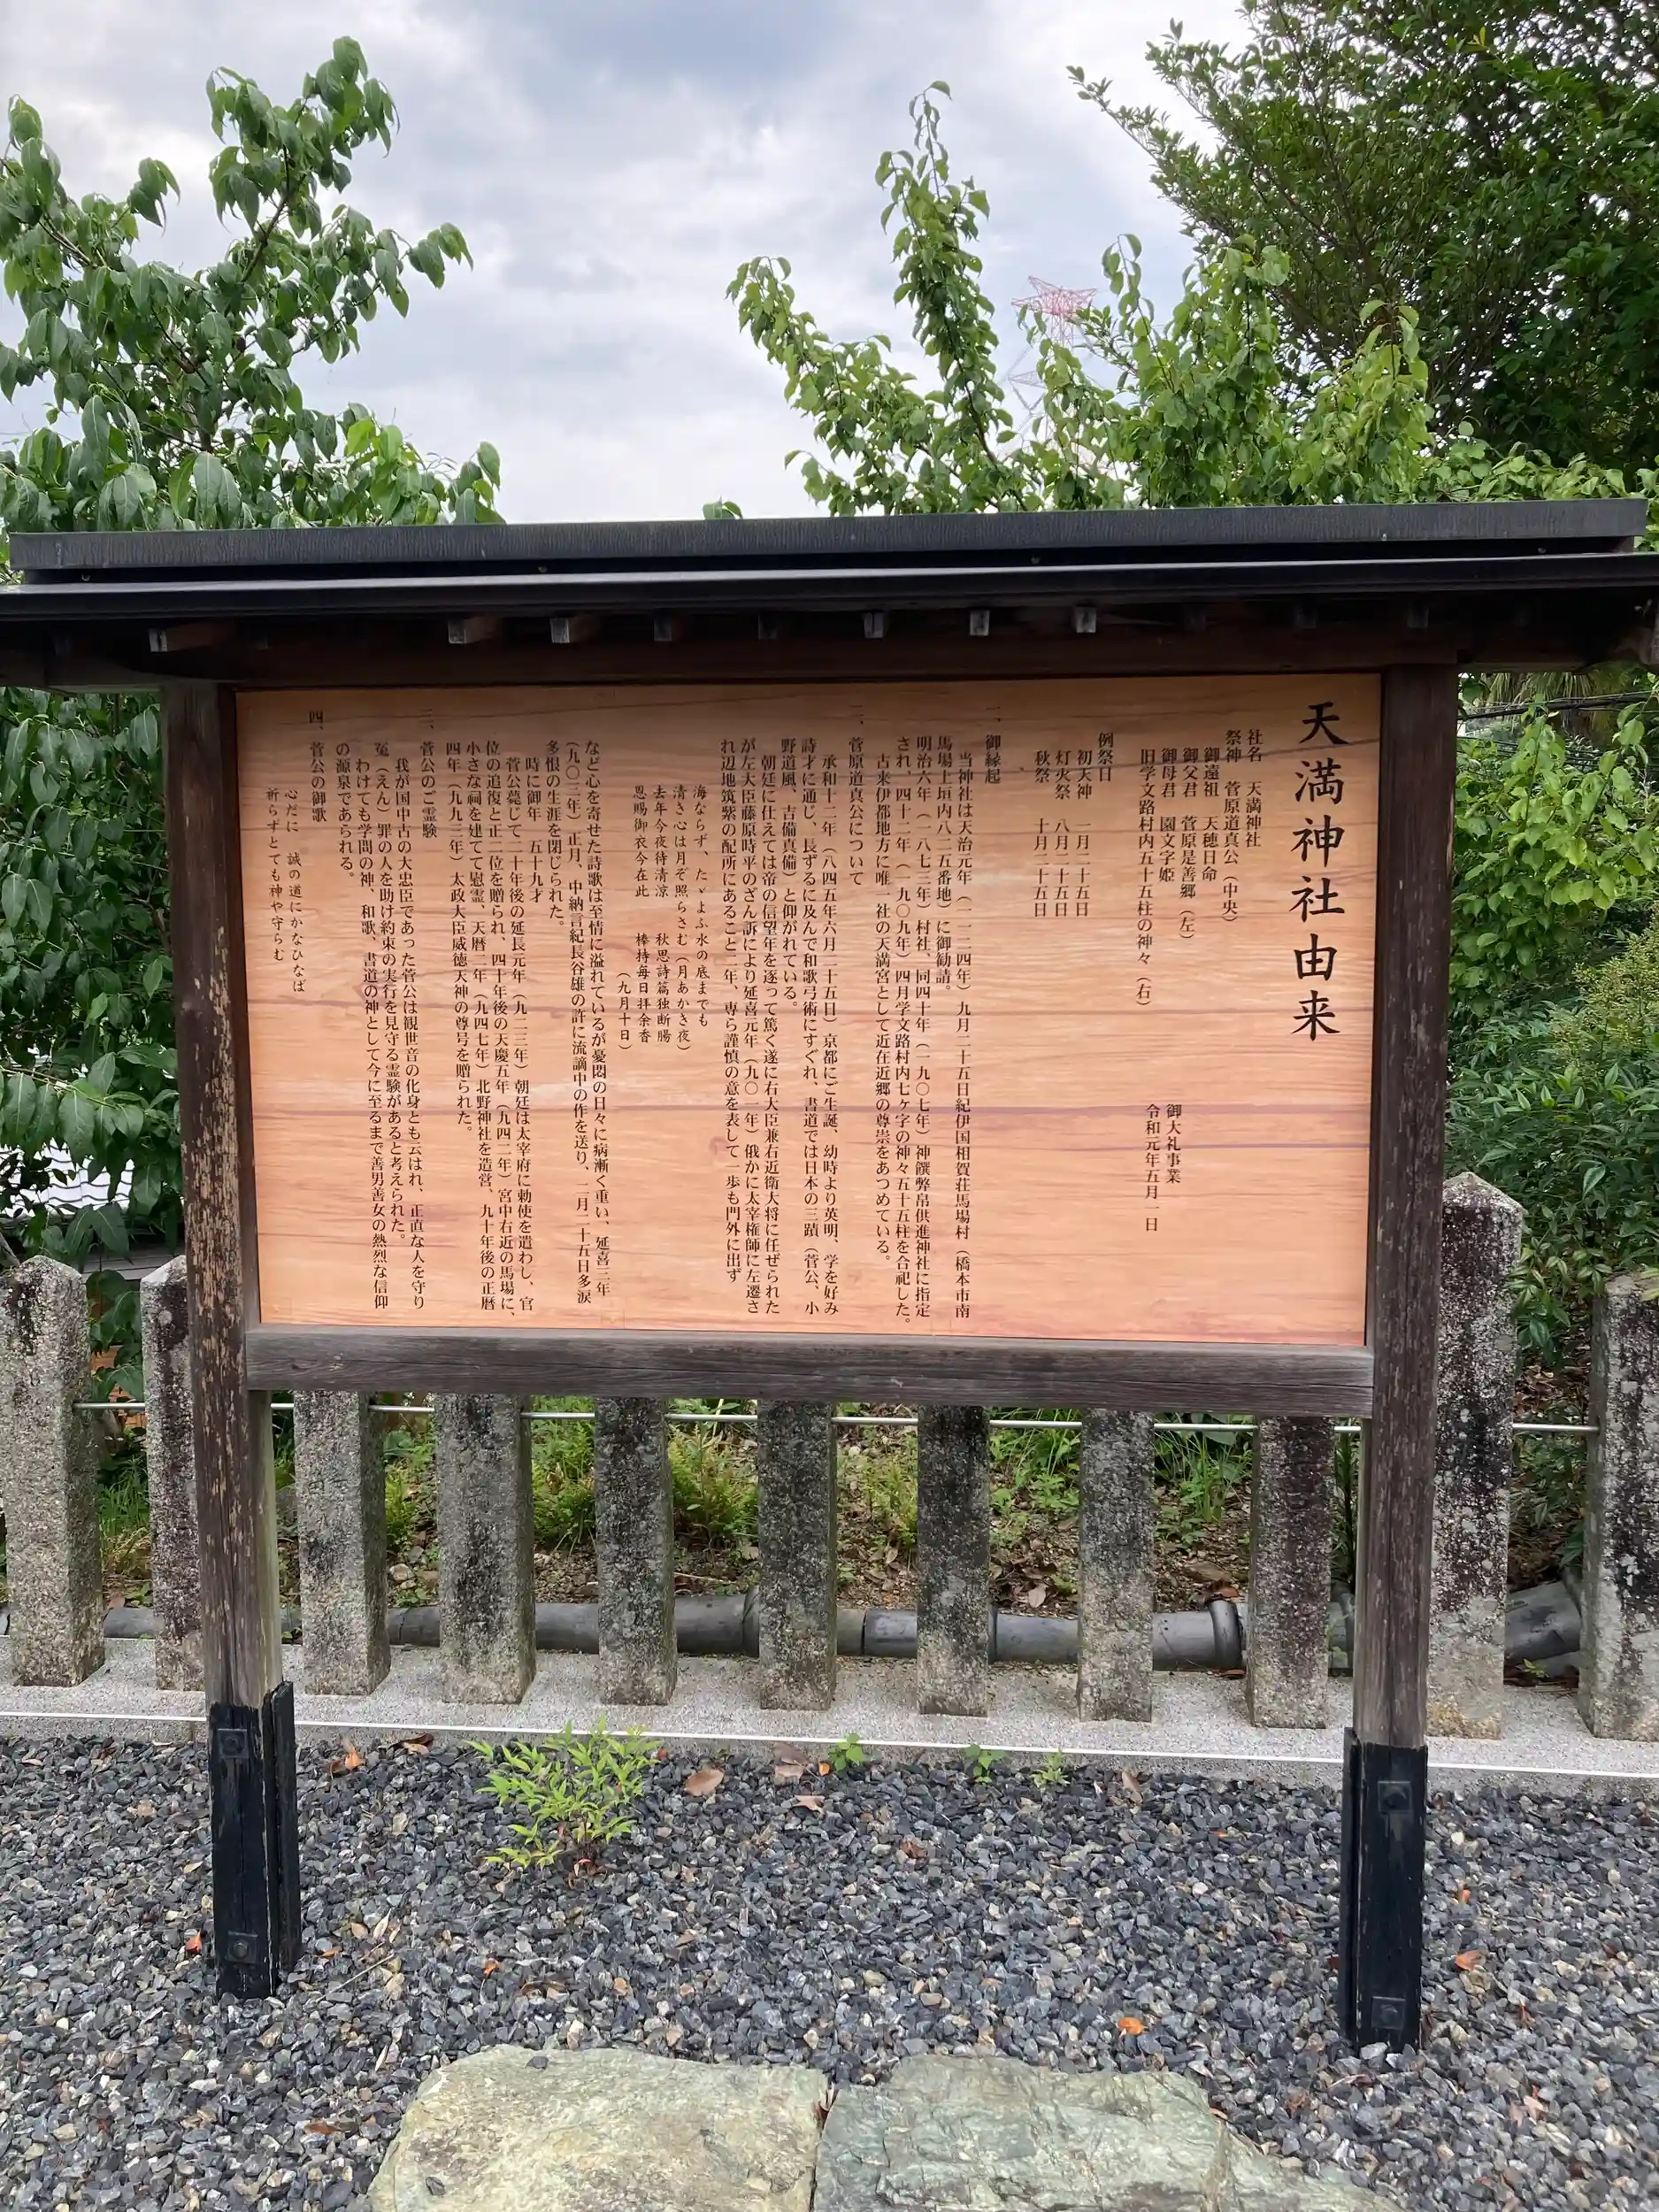 天満神社由来
社名　天満神社
祭神　菅原道真公（中央）
御遠祖　天穂日命
御父君　菅原是善郷（左）
御母君　園文字姫
旧学文路村内五十五柱の神々（右）
御大礼事業
令和元年五月一日
例祭日
初天神　一月二十五日
灯火祭　八月二十五日
秋祭　十月二十五日
一、御縁起
当神社は天治元年（一一二四年）九月二十五日紀伊国相賀荘馬場村（橋本市南
馬場上垣内八二五番地）に御勧請。
明治六年（一八七三年）村社、同四十年（一九〇七年）神饌弊帛供進神社に指定
され、四十二年（一九〇九年）四月学文路村内七ヶ字の神々五十五柱を合祀した。
古来伊都地方に唯一社の天満宮として近在近郷の尊崇をあつめている。
二、菅原道真公について
承和十二年（八四五年六月二十五日）京都にご生誕、幼時より英明、学を好み
詩才に通じ、長ずるに及んで和歌弓術にすぐれ、書道では日本の三蹟（菅公、小
野道風、吉備真備）と仰がれている。
朝廷に仕えては帝の信望年を逐って篤く遂に右大臣兼右近衛大将に任ぜられた
が左大臣藤原時平のざん訴により延喜元年（九〇一年）俄かに太宰権師に左遷さ
れ辺地筑紫の配所にあること二年、専ら謹慎の意を表して一歩も門外に出ず
海ならず、たゞよふ水の底までも
清き心は月ぞ照らさむ（月あかき夜）
去年今夜待清涼　秋思詩篇独断腸
恩賜御衣今在此　棒持毎日拝余香
（九月十日）
など心を寄せた詩歌は至情に溢れているが憂悶の日々に病漸く重い、延喜三年
（九〇三年）正月、中納言紀長谷雄の許に流謫中の作を送り、二月二十五日多涙
多恨の生涯を閉じられた。
時に御年　五十九才
菅公薨じて二十年後の延長元年（九二三年）朝廷は太宰府に勅使を遣わし、官
位の追復と正二位を贈られ、四十年後の天慶五年（九四二年）宮中右近の馬場に、
小さな祠を建てて慰霊、天暦二年（九四七年）北野神社を造営、九十年後の正暦
四年（九九三年）太政大臣威徳天神の尊号を贈られた。
三、菅公のご霊験
我が国中古の大忠臣であった菅公は観世音の化身とも云はれ、正直な人を守り
冤（えん）罪の人を助け約束の実行を見守る霊験があると考えられた。
わけても学問の神、和歌、書道の神として今に至るまで善男善女の熱烈な信仰
の源泉であられる。
四、菅公の御歌
心だに　誠の道にかなひなば
祈らずとても神や守らむ